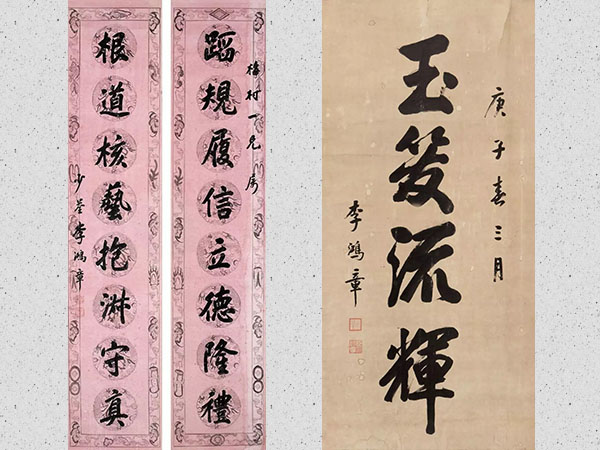 梅村一兄屬
蹈規履信立德隆禮
根道核藝抱淑守真
少荃李鴻章
庚子春三月
玉笈流輝
李鴻章